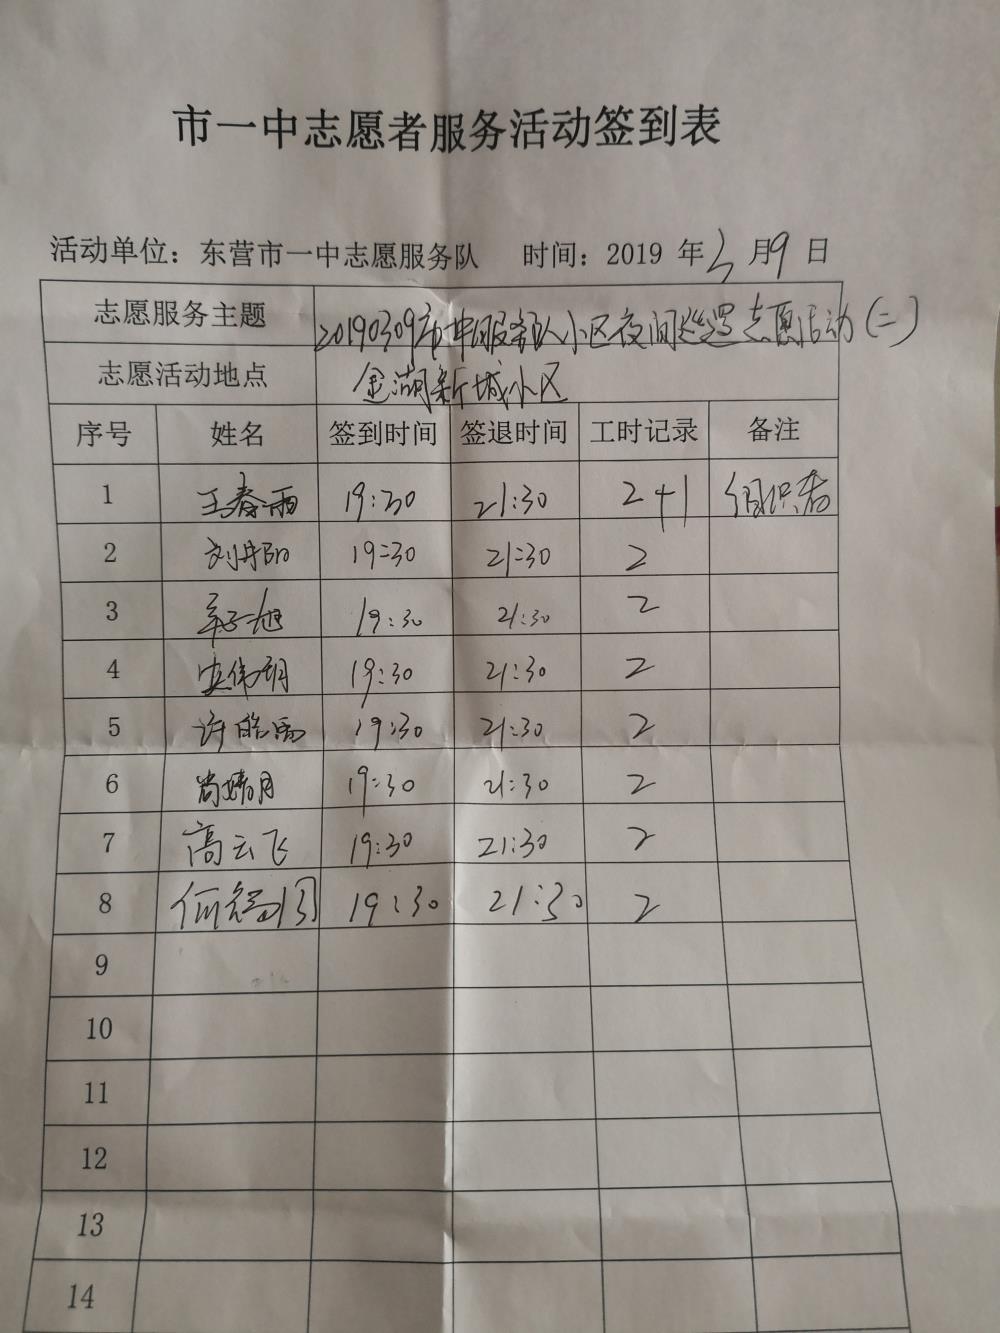 市一中志愿者服务活动签到表
活动单位：东营市一中志愿服务队 时间：2019 年 3 月 9 日
志愿服务主题 20190309市一中服务队小区夜间巡逻志愿活动(二)
志愿活动地点 金湖新城小区
序号 姓名 签到时间 签退时间 工时记录 备注
1 王春雨 19:30 21:30 2+1 组织者
2 刘丹阳 19:30 21:30 2
3 19:30 21:30 2
4 19:30 21:30 2
5 19:30 21:30 2
6 尚婧月 19:30 21:30 2
7 高云飞 19:30 21:30 2
8 19:30 21:30 2
9
10
11
12
13
14